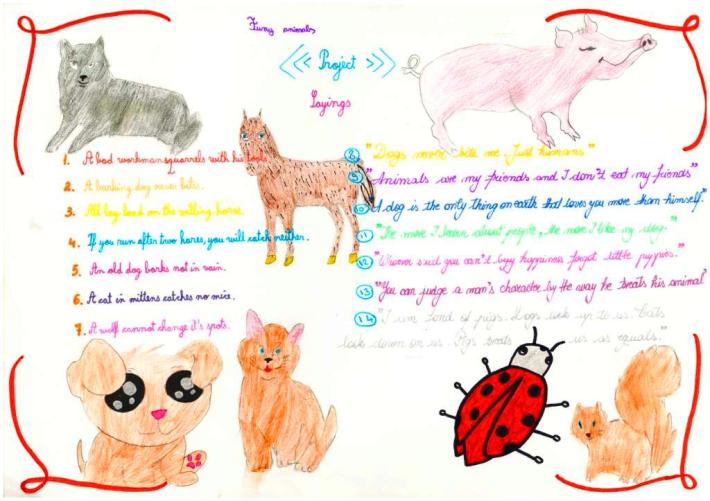 Funny animals
<<< Project >>>
Sayings
1. A bad workman squarrels with his tools.
2. A barking dog never bites.
3. All lay load on the willing horse.
4. If you run after two hares, you will catch neither.
5. An old dog barks not in vain.
6. A cat in mittens catches no mice.
7. A wolf cannot change it's spots.
8 "Dogs never bite me. Just humans"
9 "Animals are my friends and I don't eat my friends"
10 "A dog is the only thing on earth that loves you more than himself."
11 "The more I learn about people, the more I like my dog."
12 "Whoever said you can't buy happiness forgot little puppies."
13 "You can judge a man's character by the way he treats his animal"
14 "I am fond of pigs. Dogs look up to us. Cats
look down on us. Pigs treats us as equals."